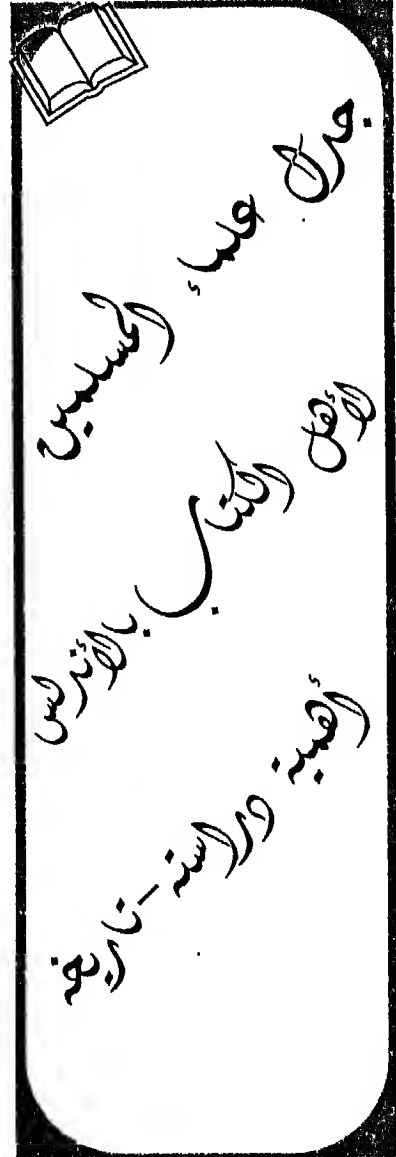 جدل علماء المسلمين
لأهل الكتاب بالأندلس
أهمية دراسته - تاريخه